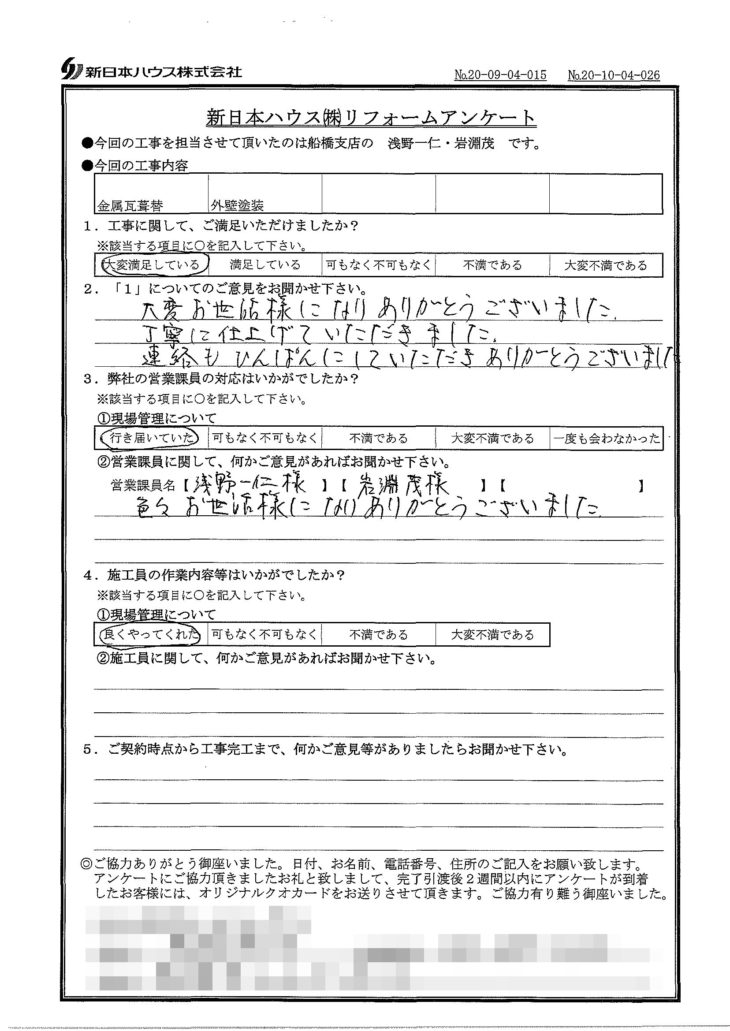 新日本ハウス株式会社 №20-09-04-015 №20-10-04-026
新日本ハウス㈱リフォームアンケート
●今回の工事を担当させて頂いたのは船橋支店の 浅野一仁・岩淵茂 です。
●今回の工事内容
金属瓦葺替 外壁塗装
1．工事に関して、ご満足いただけましたか？
※該当する項目に○を記入して下さい。
大変満足している 満足している 可もなく不可もなく 不満である 大変不満である
2．「1」についてのご意見をお聞かせ下さい。
大変お世話様になりありがとうございました.
丁寧に仕上げていただきました.
連絡もひんぱんにしていただきありがとうございました
3．弊社の営業課員の対応はいかがでしたか？
※該当する項目に○を記入して下さい。
①現場管理について
行き届いていた 可もなく不可もなく 不満である 大変不満である 一度も会わなかった
②営業課員に関して、何かご意見があればお聞かせ下さい。
営業課員名【浅野一仁様 】【 岩淵茂様 】【 】
色々お世話様になりありがとうございました.
4．施工員の作業内容等はいかがでしたか？
※該当する項目に○を記入して下さい。
①現場管理について
良くやってくれた 可もなく不可もなく 不満である 大変不満である
②施工員に関して、何かご意見があればお聞かせ下さい。
5．ご契約時点から工事完工まで、何かご意見等がありましたらお聞かせ下さい。
◎ご協力ありがとう御座いました。日付、お名前、電話番号、住所のご記入をお願い致します。
アンケートにご協力頂きましたお礼と致しまして、完了引渡後２週間以内にアンケートが到着
したお客様には、オリジナルクオカードをお送りさせて頂きます。ご協力有り難う御座いました。